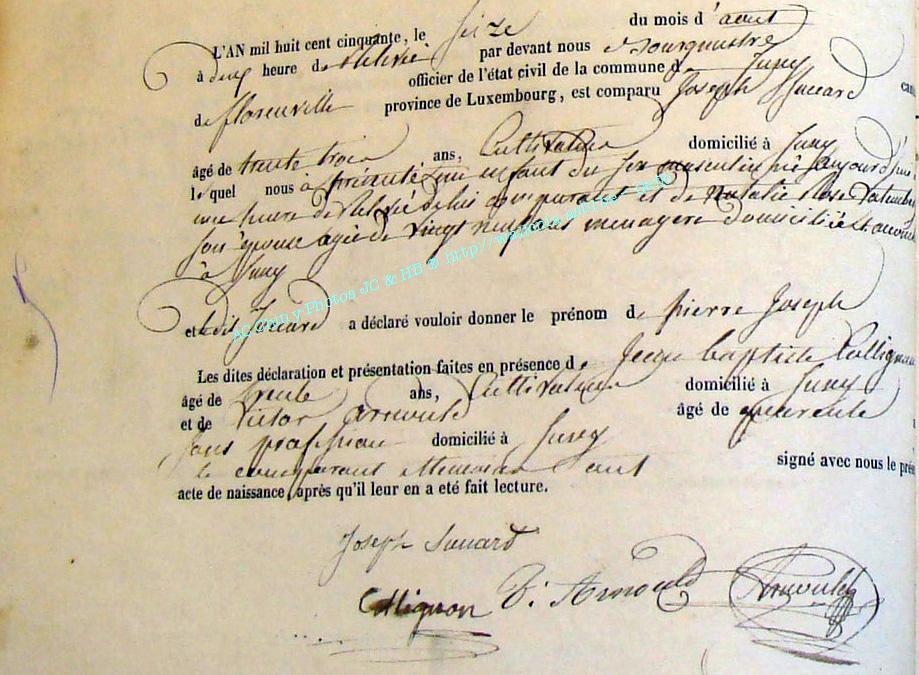 L'AN mil huit cent cinquante, le seize du mois d'aout
à deux heure de relevée par devant nous Bourguestre
officier de l'état civil de la commune d
de florenville province de Luxembourg, est comparu Joseph
âgé de trente trois ans, Cultivateur domicilié à
lequel nous à présenté un enfant du sex masculin né aujourd'hui
une heure de relevée de lui comparant et de Natalie Rose
son épouse agée de vingt neuf ans menagère domiciliée
à
et ledit a déclaré vouloir donner le prénom de pierre Joseph
Les dites déclaration et présentation faites en présence de Jean baptiste Collignon
âgé de trente ans, Cultivateur domicilié à
et de Victor arnould âgé de quarante
sans profession domicilié à
le comparant et temoins ont signé avec nous le
acte de naissance, après qu'il leur en a eté fait lecture.
Joseph Suuard
Collignon V. Arnould Arnould
AC Cum y Photos JC & HB © http://wallonia.